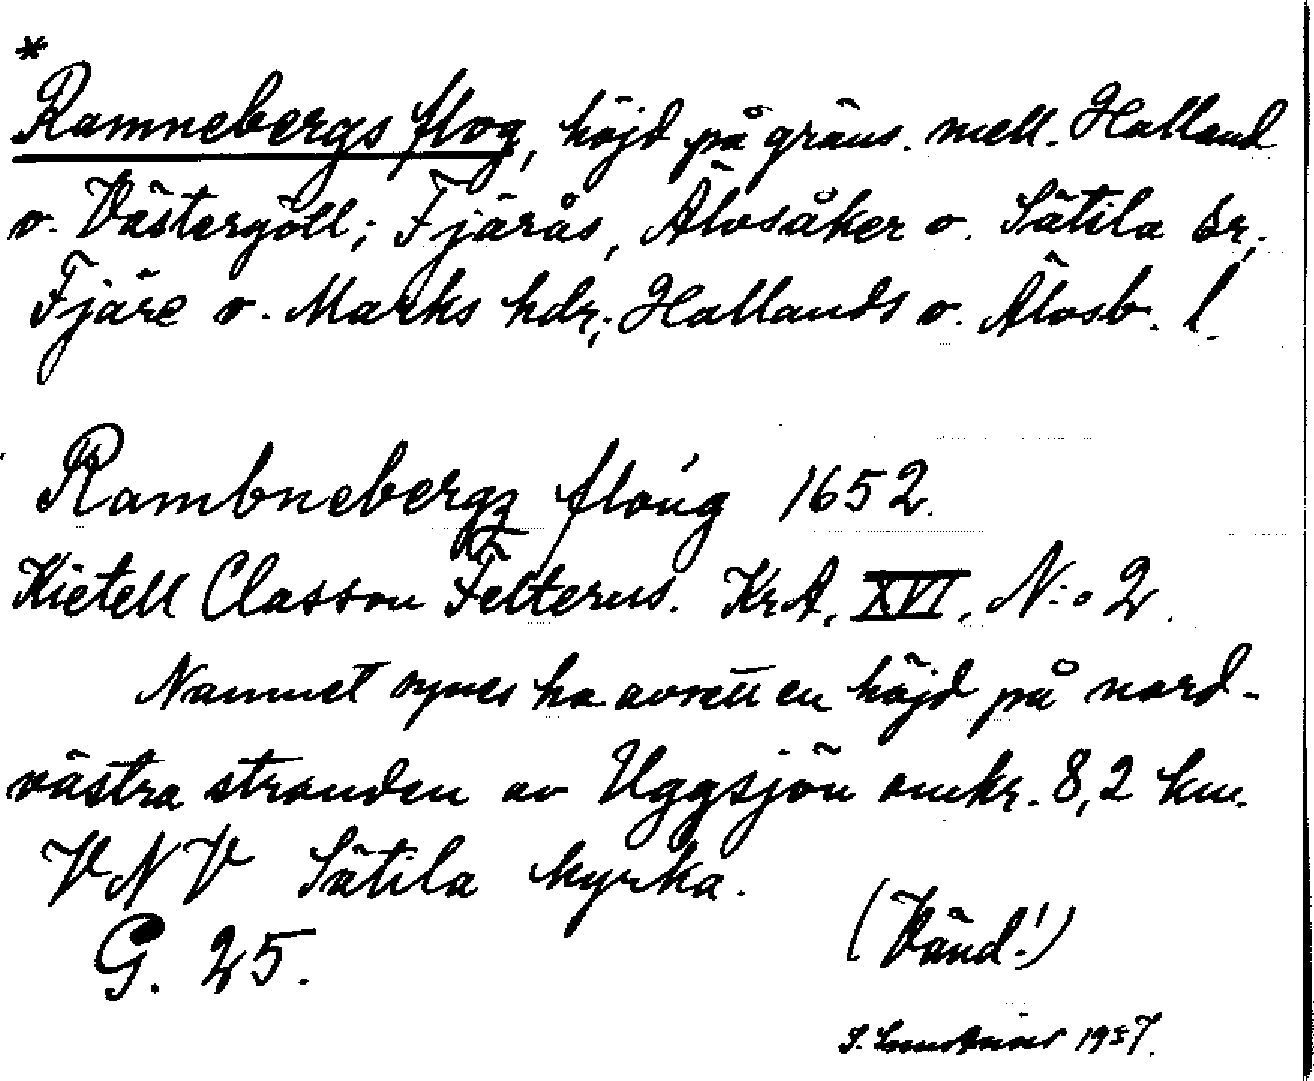 *
Ramnebergs flog, höjd på gräns. mell. Halland
o. Västergötl; Fjärås, Älvsåker o. Sätila snr,
Fjäre o. Marks hdr; Hallands o. Älvsb. l.
Rambnebergz floúg 1652.
Kietell Classon Felterus. KrA, XVI, N:o 2.
Namnet synes ha avsett en höjd på nord-
västra stranden av Uggsjön omkr. 8,2 km.
VNV Sätila kyrka.
G. 25.
(Vänd!)
1957.